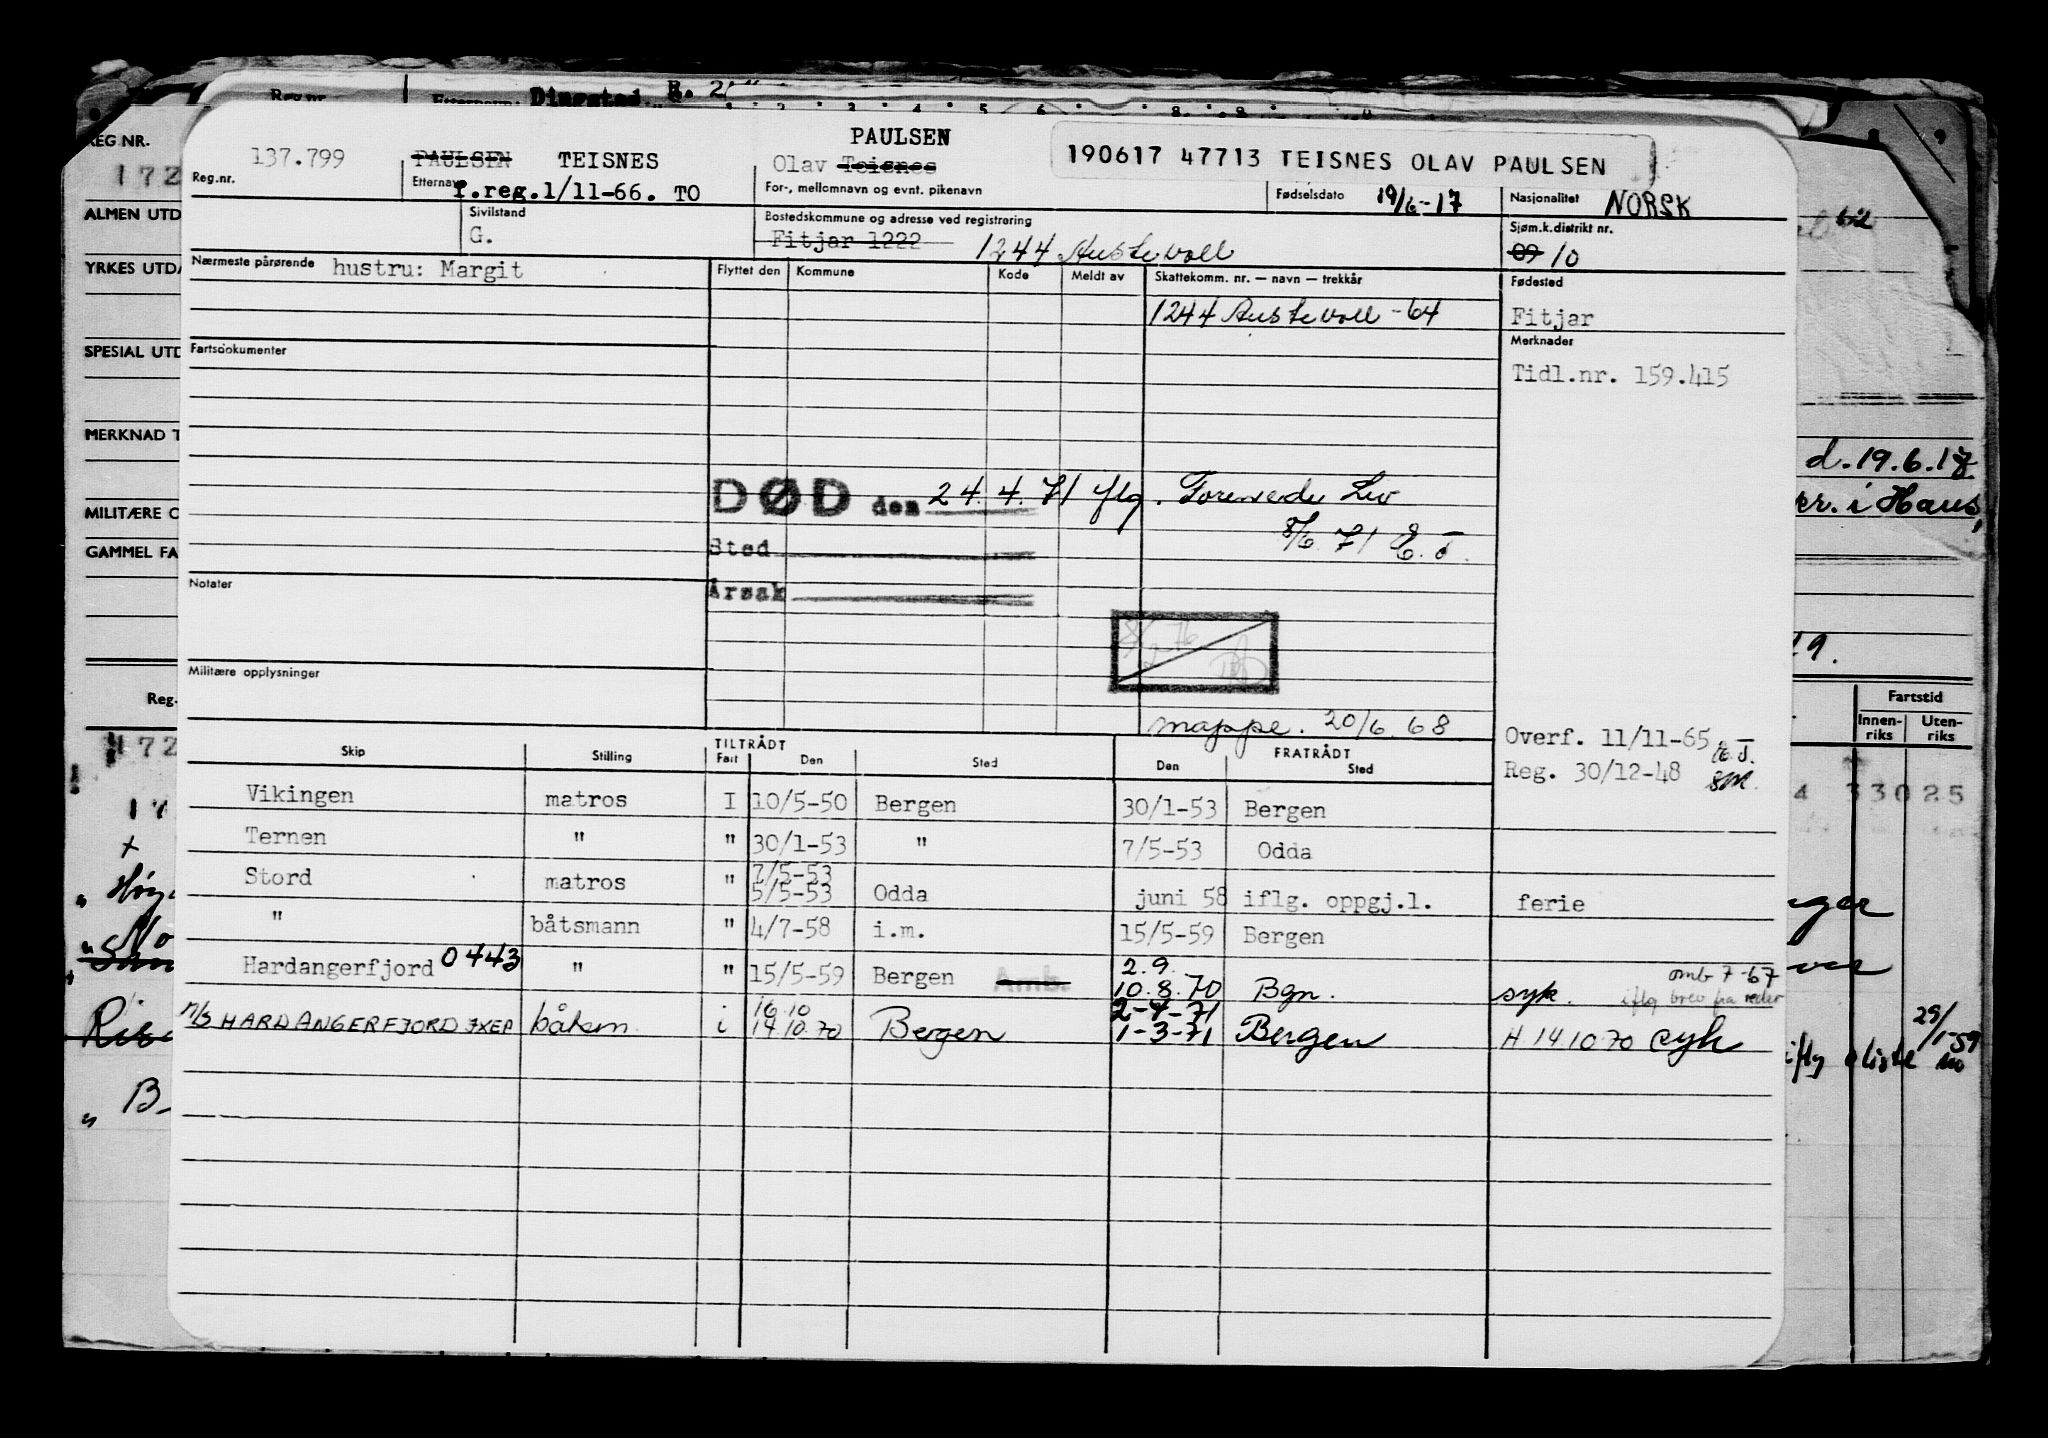 137.799 PAULSEN TEISNES PAULSEN
Olav Teisnes
190617 47713 TEISNES OLAV PAULSEN
Reg.nr. Etternavn f.reg.1/11-66. TO For-, mellomnavn og evnt. pikenavn Fødselsdato 19/6-17 Nasjonalitet NORSK
Sivilstand Bostedskommune og adresse ved registrering Sjøm.k.distrikt nr.
G. Fitjar 1222 1244 Austevoll 09 10
Nærmeste pårørende hustru: Margit Flyttet den Kommune Kode Meldt av Skattekomm. nr. — navn — trekkår Fødested
1244 Austevoll -64 Fitjar
Fartsdokumenter Merknader
Tidl.nr. 159.415
DØD den 24.4.71 flg.
8/6.71
Sted
Årsak
Notater
Militære opplysninger
mappe. 20/6.68
Overf. 11/11-65
Reg. 30/12-48
TILTRÅDT FRATRÅDT
Skip Stilling Fart Den Sted Den Sted
Vikingen matros I 10/5-50 Bergen 30/1-53 Bergen
Ternen " " 30/1-53 " 7/5-53 Odda
7/5-53
Stord matros " 5/5-53 Odda juni 58 iflg. oppgj.l. ferie
" båtsmann " 4/7-58 i.m. 15/5-59 Bergen
2.9. omb 7-67
Hardangerfjord 0443 " " 15/5-59 Bergen Amb. 10.8.70 Bgn. syk. iflg brev fra reder
16.10 2-4-71
M/S HARDANGERFJORD JXEP båtsm i 14.10.70 Bergen 1-3-71 Bergen H 14 10 70 syk
REG NR.
172
ALMEN UTD
YRKES UTDA
SPESIAL UTD
MERKNAD T
MILITÆRE O
GAMMEL FA
Reg.
172
Reg.nr. Etternavn: Dingstad
d. 19.6.18
i Haus,
Fartstid
Innen-
riks
Uten-
riks
4 33025
29/1-59